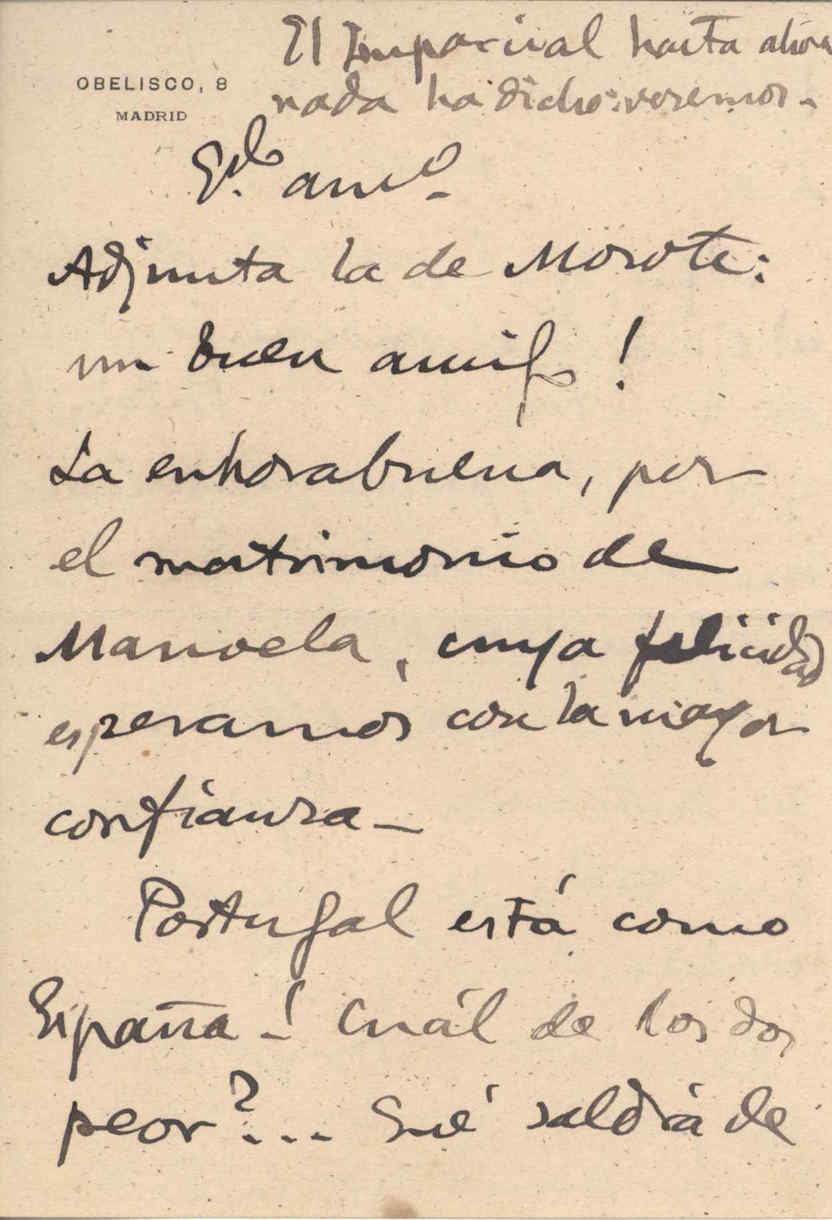 El Imparcial hasta ahora
nada ha dicho: veremos.-
OBELISCO, 8
MADRID
Qdo. amo.
Adjunta la de Morote:
un buen amigo!
La enhorabuena, por
el matrimonio de
Manuela, cuya felicidad
esperamos con la mayor
confianza_
Portugal está como
España_ ¿Cuál de los dos
peor?... Qué saldrá de